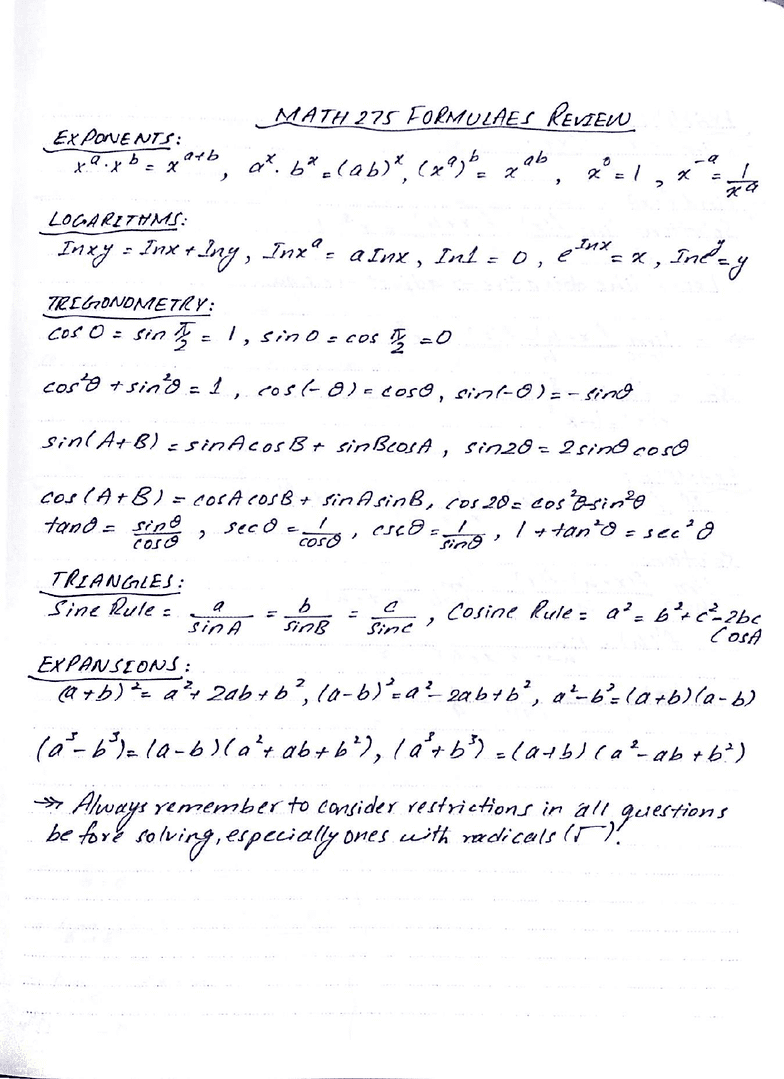 MATH 275 FORMULAES REVIEW
EXPONENTS:
x^a · x^b = x^(a+b), a^x · b^x = (ab)^x, (x^a)^b = x^(ab), x^0 = 1, x^(-a) = 1/x^a
LOGARITHMS:
Inxy = Inx + Iny, Inx^a = aInx, In1 = 0, e^(Inx) = x, Ine^y = y
TREGONOMETRY:
cos 0 = sin π/2 = 1, sin 0 = cos π/2 = 0
cos²θ + sin²θ = 1, cos(-θ) = cosθ, sin(-θ) = - sinθ
sin(A+B) = sinAcosB + sinBcosA, sin2θ = 2sinθcosθ
cos(A+B) = cosAcosB + sinAsinB, cos2θ = cos²θ-sin²θ
tanθ = sinθ/cosθ, secθ = 1/cosθ, cscθ = 1/sinθ, 1 + tan²θ = sec²θ
TRIANGLES:
Sine Rule = a/sinA = b/sinB = c/sinc, Cosine Rule = a² = b² + c² - 2bc
CosA
EXPANSIONS:
(a+b)² = a² + 2ab + b², (a-b)² = a² - 2ab + b², a² - b² = (a+b)(a-b)
(a³ - b³) = (a-b)(a² + ab + b²), (a³ + b³) = (a+b)(a² - ab + b²)
→» Always remember to consider restrictions in all questions
before solving, especially ones with radicals (√ )!